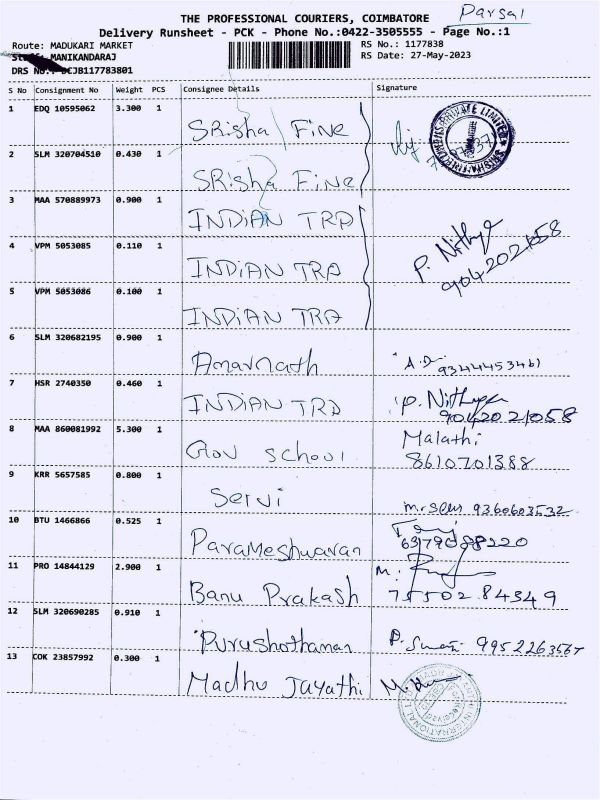 Parsal
THE PROFESSIONAL COURIERS, COIMBATORE
Delivery Runsheet - PCK - Phone No.:0422-3505555 - Page No.:1
Route: MADUKARI MARKET
RS No.: 1177838
MANIKANDARAJ
RS Date: 27-May-2023
DRS No.: JB117783801
S No Consignment No Weight PCS Consignee Details Signature
1 EDQ 10595062 3.300 1 SRisha Fine
2 SLM 320704510 0.430 1 SRisha Fine
3 MAA 570889973 0.900 1 INDIAN TRD
4 VPM 5053085 0.110 1 INDIAN TRA P. Nithya
5 VPM 5053086 0.100 1 INDIAN TRA
6 SLM 320682195 0.900 1 Amarnath A.D. 9344453461
7 HSR 2740350 0.460 1 INDIAN TRD P. Nithya 9042021058
8 MAA 860081992 5.300 1 Gov school Malathi 8610701388
9 KRR 5657585 0.800 1 Selvi 9360603532
10 BTU 1466866 0.525 1 Parameshwaran 6379088220
11 PRO 14844129 2.900 1 Banu Prakash M. 75502 84349
12 SLM 320690285 0.910 1 Purushothaman P. 9952263567
13 COK 23857992 0.300 1 Madhu Jayathi